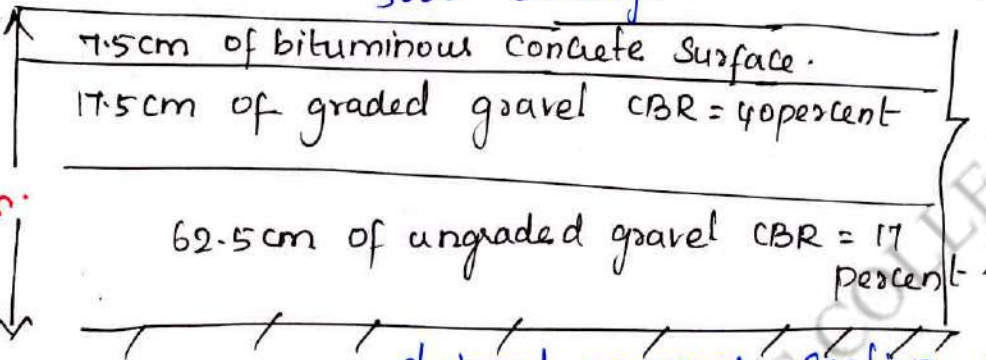 7.5cm of bituminous concrete Surface.
17.5cm of graded gravel CBR = 40percent
62.5cm of ungraded gravel CBR = 17
percent.
COLLE